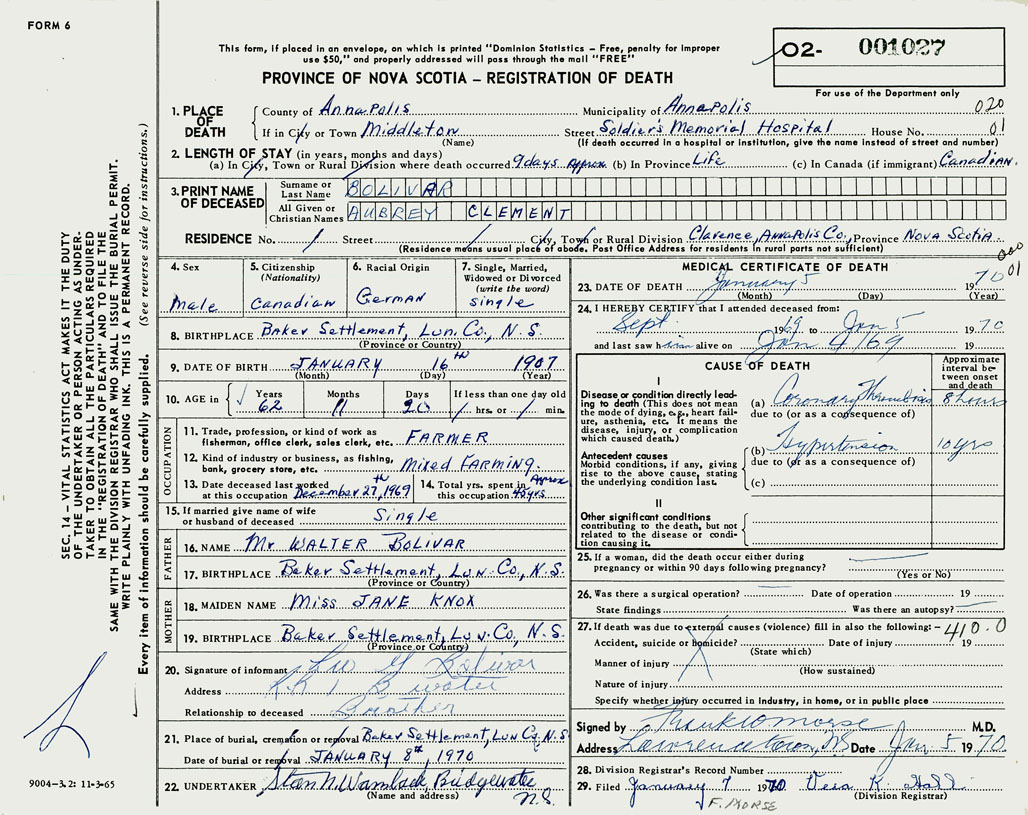 FORM 6
This form, if placed in an envelope, on which is printed "Dominion Statistics – Free, penalty for improper
use $50," and properly addressed will pass through the mail "FREE"
PROVINCE OF NOVA SCOTIA – REGISTRATION OF DEATH
02- 001027
For use of the Department only
SEC. 14 – VITAL STATISTICS ACT MAKES IT THE DUTY
OF THE UNDERTAKER OR PERSON ACTING AS UNDER-
TAKER TO OBTAIN ALL THE PARTICULARS REQUIRED
IN THE "REGISTRATION OF DEATH" AND TO FILE THE
SAME WITH THE DIVISION REGISTRAR WHO SHALL ISSUE THE BURIAL PERMIT.
WRITE PLAINLY WITH UNFADING INK. THIS IS A PERMANENT RECORD.
Every item of information should be carefully supplied. (See reverse side for instructions.)
1. PLACE OF DEATH County of Annapolis Municipality of Annapolis 020
If in City or Town Middleton Street Soldier's Memorial Hospital House No. 01
(Name) (If death occurred in a hospital or institution, give the name instead of street and number)
2. LENGTH OF STAY (in years, months and days)
(a) In City, Town or Rural Division where death occurred 9 days Approx (b) In Province Life (c) In Canada (if immigrant) Canadian.
3. PRINT NAME OF DECEASED Surname or Last Name BOLIVAR
All Given or Christian Names AUBREY CLEMENT
RESIDENCE No. / Street / City, Town or Rural Division Clarence, Annapolis Co., Province Nova Scotia
(Residence means usual place of abode. Post Office Address for residents in rural parts not sufficient)
01
4. Sex Male
5. Citizenship (Nationality) Canadian
6. Racial Origin German
7. Single, Married, Widowed or Divorced (write the word) single
8. BIRTHPLACE Baker Settlement, Lun. Co., N.S.
(Province or Country)
9. DATE OF BIRTH JANUARY 16th 1907
(Month) (Day) (Year)
10. AGE in Years 62 Months 11 Days 20 If less than one day old / hrs. or / min.
OCCUPATION
11. Trade, profession, or kind of work as
fisherman, office clerk, sales clerk, etc. FARMER
12. Kind of industry or business, as fishing,
bank, grocery store, etc. Mixed FARMING.
13. Date deceased last worked
at this occupation December 27th, 1969
14. Total yrs. spent in
this occupation Approx 45 yrs
15. If married give name of wife
or husband of deceased Single
FATHER
16. NAME Mr WALTER BOLIVAR
17. BIRTHPLACE Baker Settlement, Lun. Co., N.S.
(Province or Country)
MOTHER
18. MAIDEN NAME Miss JANE KNOX
19. BIRTHPLACE Baker Settlement, Lun. Co, N.S.
(Province or Country)
20. Signature of informant Bolivar
Address R.R 1 B water
Relationship to deceased Brother
21. Place of burial, cremation or removal Baker Settlement, Lun Co. N.S.
Date of burial or removal JANUARY 8th, 1970
22. UNDERTAKER Bridgewater N.S.
(Name and address)
MEDICAL CERTIFICATE OF DEATH
23. DATE OF DEATH January 5 1970
(Month) (Day) (Year)
24. I HEREBY CERTIFY that I attended deceased from:
Sept 1969 to Jan 5 1970
and last saw him alive on Jan 4/69 19
CAUSE OF DEATH
Approximate interval between onset and death
I
Disease or condition directly leading to death (This does not mean the mode of dying, e.g., heart failure, asthenia, etc. It means the disease, injury, or complication which caused death.)
(a) Coronary Thrombosis 8 hours
due to (or as a consequence of)
Antecedent causes
Morbid conditions, if any, giving rise to the above cause, stating the underlying condition last.
(b) Hypertension 10 yrs
due to (or as a consequence of)
(c)
II
Other significant conditions
contributing to the death, but not
related to the disease or condition causing it.
25. If a woman, did the death occur either during
pregnancy or within 90 days following pregnancy?
(Yes or No)
26. Was there a surgical operation? Date of operation 19
State findings Was there an autopsy?
27. If death was due to external causes (violence) fill in also the following: – 410.0
Accident, suicide or homicide? Date of injury 19
(State which)
Manner of injury
(How sustained)
Nature of injury
Specify whether injury occurred in industry, in home, or in public place
Signed by Frank Morse M.D.
Address Lawrencetown, NS Date Jan 5 1970
28. Division Registrar's Record Number
29. Filed January 7 1970 Vera K. Hall
(Division Registrar)
F. MORSE
9004-3.2: 11-3-65